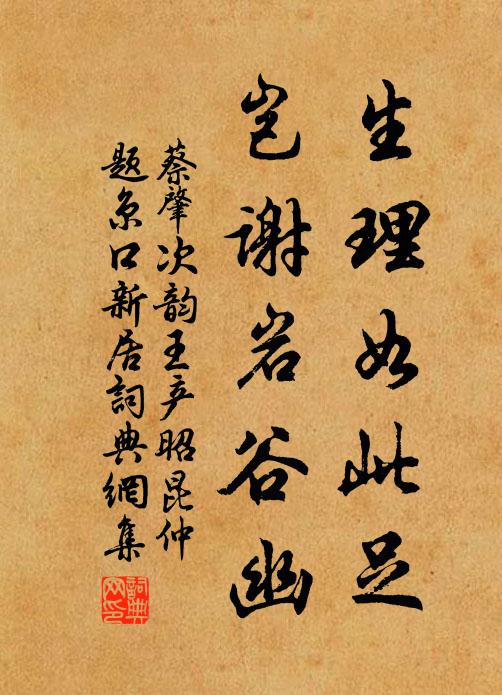 生理如此足
岂谢岩谷幽
蔡肇次韵王产昭昆仲
题京口新居詞典網集
詞典
网印